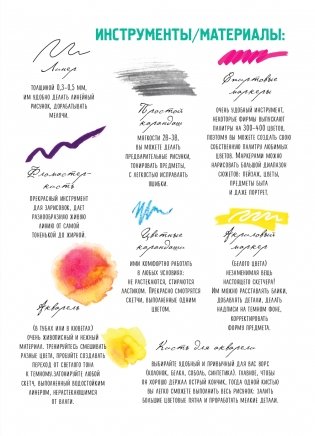 ИНСТРУМЕНТЫ/МАТЕРИАЛЫ:
Линер
ТОЛЩИНОЙ 0,3-0,5 ММ,
ИМ УДОБНО ДЕЛАТЬ ЛИНЕЙНЫЙ
РИСУНОК, ДОРАБАТЫВАТЬ
МЕЛОЧИ.
Простой
карандаш
МЯГКОСТИ 2B-3B,
ВЫ МОЖЕТЕ ДЕЛАТЬ
ПРЕДВАРИТЕЛЬНЫЕ РИСУНКИ,
ТОНИРОВАТЬ ПРЕДМЕТЫ,
С ЛЕГКОСТЬЮ ИСПРАВЛЯТЬ
ОШИБКИ.
Спиртовые
маркеры
ОЧЕНЬ УДОБНЫЙ ИНСТРУМЕНТ,
НЕКОТОРЫЕ ФИРМЫ ВЫПУСКАЮТ
ПАЛИТРЫ НА 300-400 ЦВЕТОВ,
ПОЭТОМУ ВЫ МОЖЕТЕ СОЗДАТЬ СВОЮ
СОБСТВЕННУЮ ПАЛИТРУ ЛЮБИМЫХ
ЦВЕТОВ. МАРКЕРАМИ МОЖНО
НАРИСОВАТЬ БОЛЬШОЙ ДИАПАЗОН
СЮЖЕТОВ: ПЕЙЗАЖ, ЦВЕТЫ,
ПРЕДМЕТЫ БЫТА
И ДАЖЕ ПОРТРЕТ.
Фломастер-
кисть
ПРЕКРАСНЫЙ ИНСТРУМЕНТ
ДЛЯ ЗАРИСОВОК, ДАЕТ
РАЗНООБРАЗНУЮ ЖИВУЮ
ЛИНИЮ ОТ САМОЙ
ТОНЕНЬКОЙ ДО ЖИРНОЙ.
Цветные
карандаши
ИМИ КОМФОРТНО РАБОТАТЬ
В ЛЮБЫХ УСЛОВИЯХ:
НЕ РАСТЕКАЮТСЯ, СТИРАЮТСЯ
ЛАСТИКОМ. ПРЕКРАСНО СМОТРЯТСЯ
СКЕТЧИ, ВЫПОЛНЕННЫЕ ОДНИМ
ЦВЕТОМ.
Акриловый
маркер
(БЕЛОГО ЦВЕТА)
НЕЗАМЕНИМАЯ ВЕЩЬ
НАСТОЯЩЕГО СКЕТЧЕРА!
ИМ МОЖНО РАССТАВЛЯТЬ БЛИКИ,
ДОБАВЛЯТЬ ДЕТАЛИ, ДЕЛАТЬ
НАДПИСИ НА ТЕМНОМ ФОНЕ,
КОРРЕКТИРОВАТЬ
ФОРМУ ПРЕДМЕТА.
Акварель
(В ТУБАХ ИЛИ В КЮВЕТАХ)
ОЧЕНЬ ЖИВОПИСНЫЙ И НЕЖНЫЙ
МАТЕРИАЛ. ТРЕНИРУЙТЕСЬ СМЕШИВАТЬ
РАЗНЫЕ ЦВЕТА, ПРОБУЙТЕ СОЗДАВАТЬ
ПЕРЕХОД ОТ СВЕТЛОГО ТОНА
К ТЕМНОМУ. ЗАТОНИРУЙТЕ ЛЮБОЙ
СКЕТЧ, ВЫПОЛНЕННЫЙ ВОДОСТОЙКИМ
ЛИНЕРОМ, НЕРАСТЕКАЮЩИМСЯ
ОТ ВЛАГИ.
Кисть для акварели
ВЫБИРАЙТЕ УДОБНЫЙ И ПРИВЫЧНЫЙ ДЛЯ ВАС ВОРС
(КОЛОНОК, БЕЛКА, СОБОЛЬ, СИНТЕТИКА). ГЛАВНОЕ, ЧТОБЫ
ОН ХОРОШО ДЕРЖАЛ ОСТРЫЙ КОНЧИК, ТОГДА ОДНОЙ КИСТЬЮ
ВЫ ЛЕГКО СМОЖЕТЕ ВЫПОЛНИТЬ ВЕСЬ РИСУНОК: ЗАЛИТЬ
БОЛЬШИЕ ЦВЕТОВЫЕ ПЯТНА И ПРОРАБОТАТЬ МЕЛКИЕ ДЕТАЛИ.